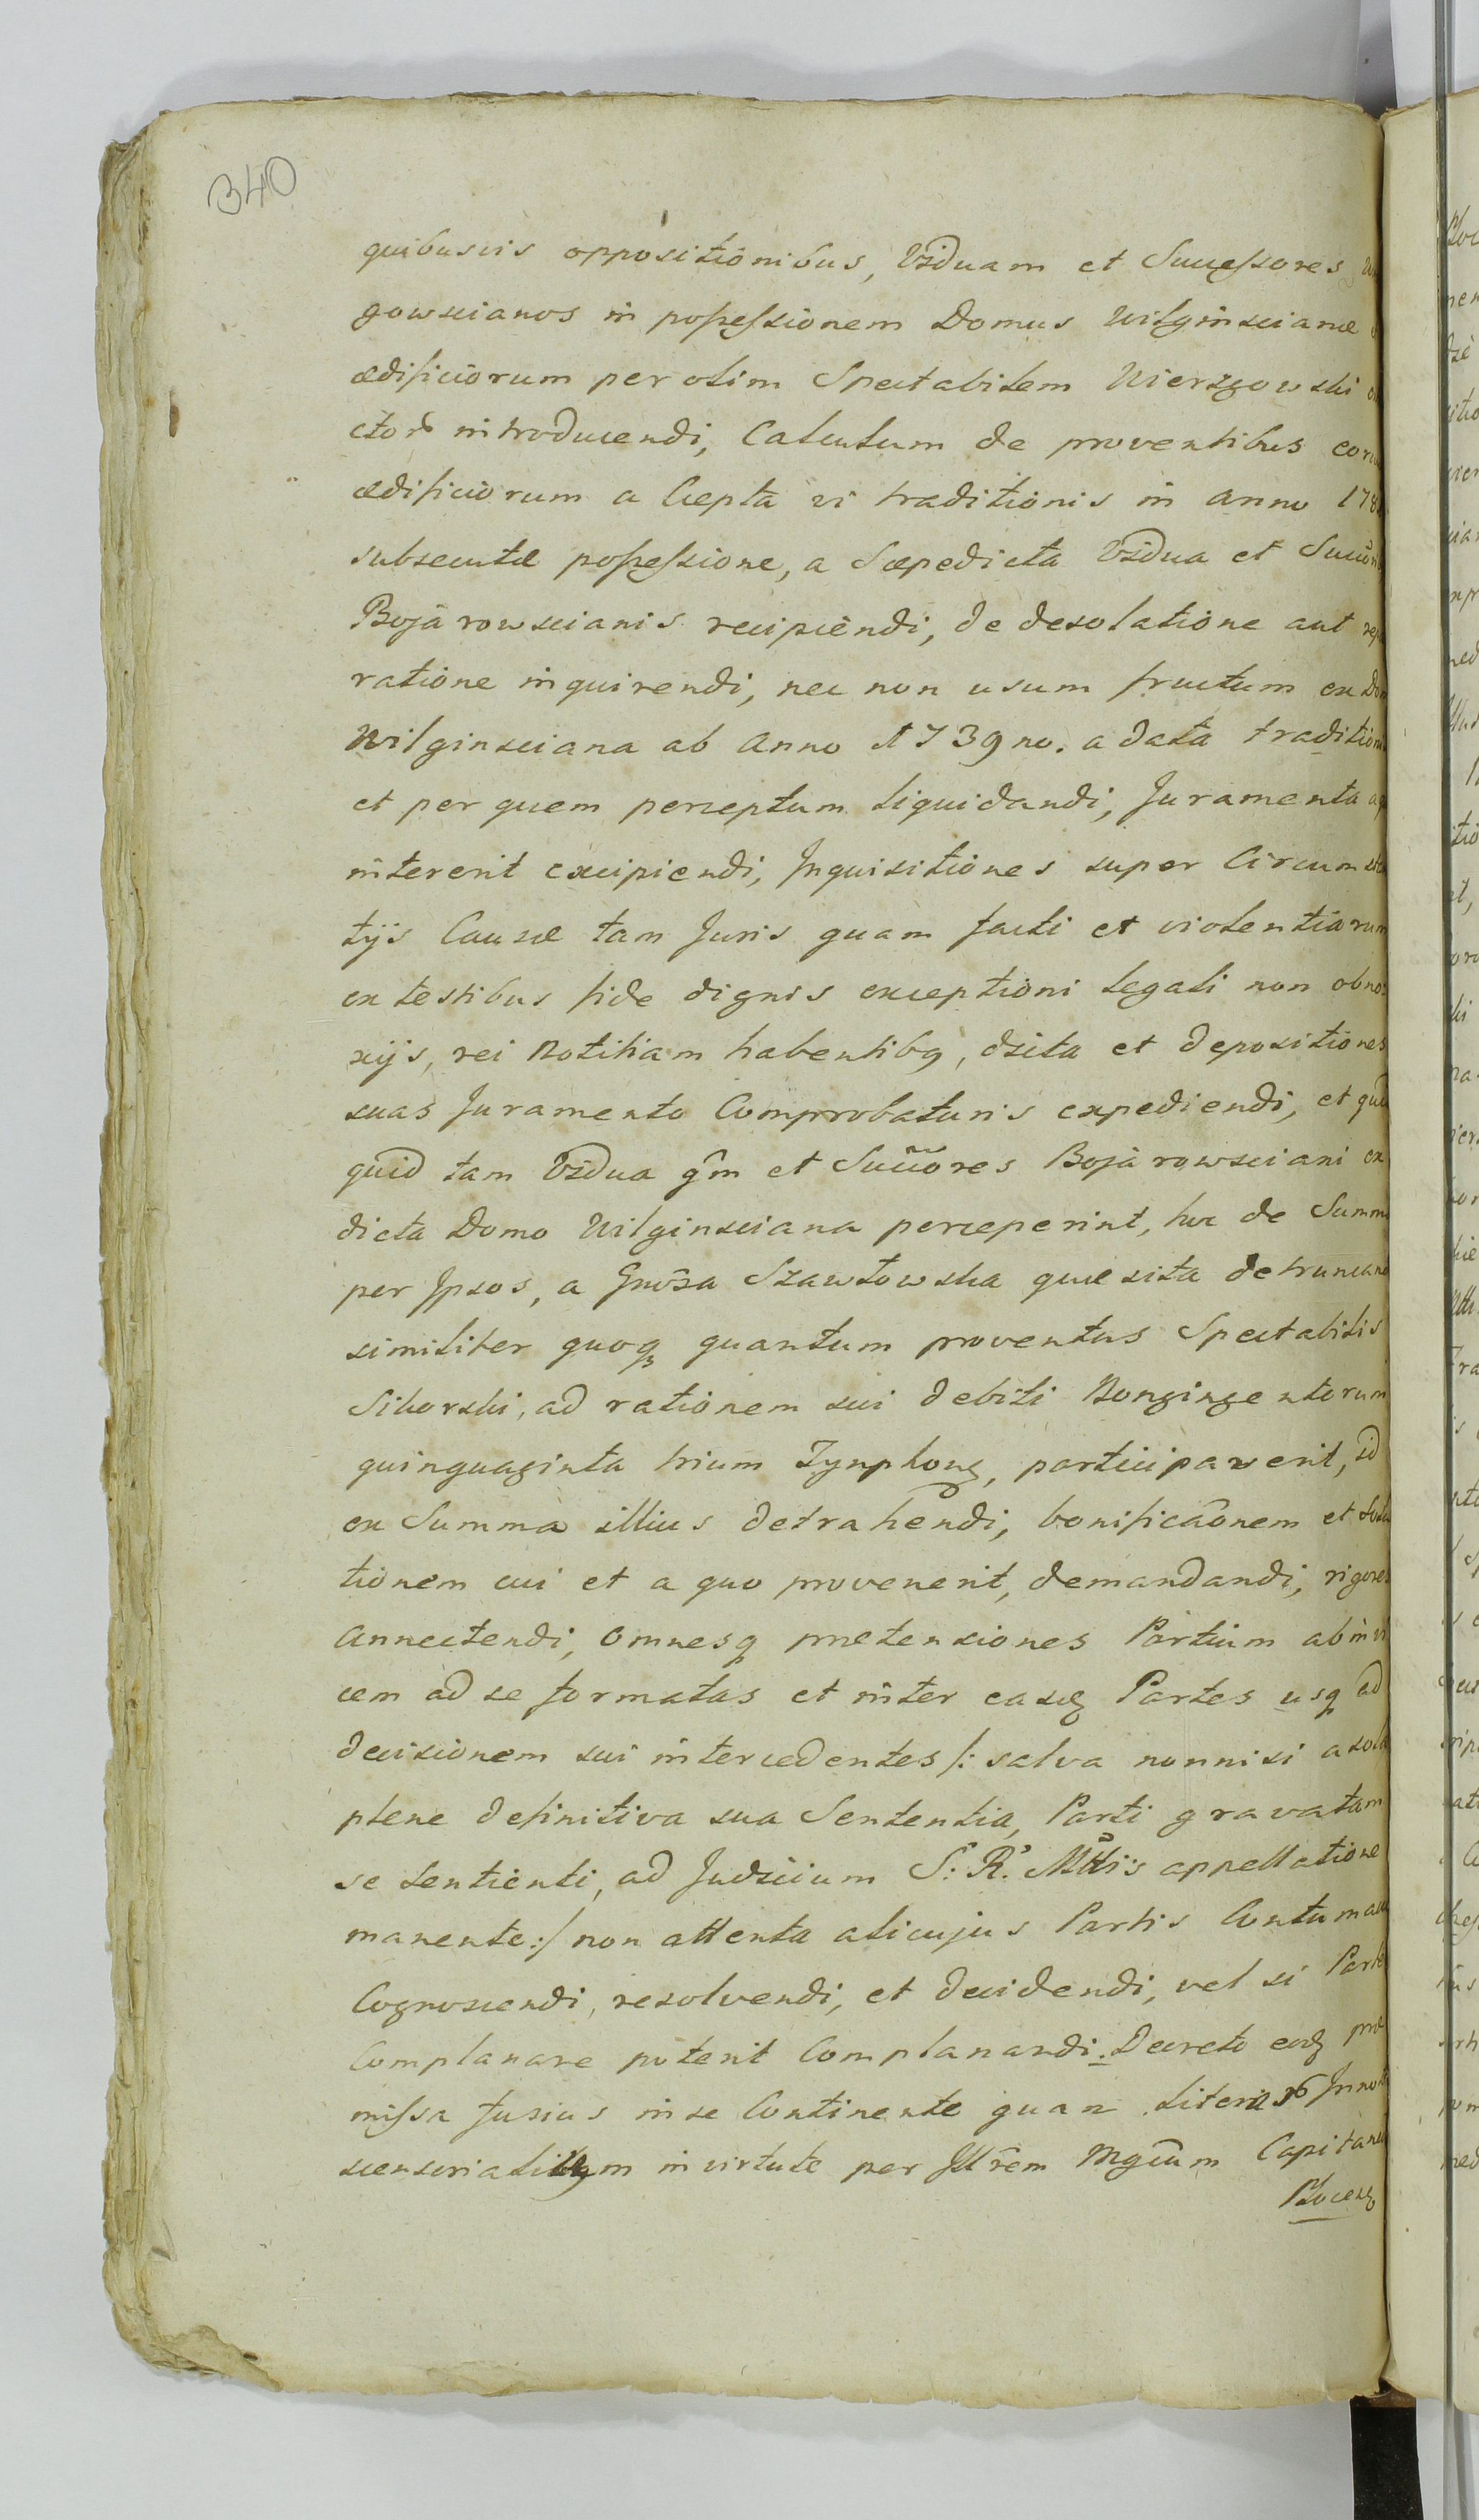 340
quibusvis oppositionibus, Viduam et Successores
gowscianos in possessionem Domus Wilginscianæ
ædificiorum per olim Spectabilem Wierzgowski
ctor introducendi, Calculum de proventibus eoru
ædificiorum a Cepta vi traditionis in Anno 178
subsecutæ possessione, a Sæpedicta Vidua et Succôn
Bojarowscianis recipiendi, de desolatione aut repa
ratione inquirendi, nec non usum fructum ex Dom
Wilginsciana ab Anno 1739no. a data traditioni
et per quem perceptum liquidandi, Juramenta
intererit excipiendi, Inquisitiones super Circumsta
tijs Causæ tam Juris quam facti et violentiarum
ex testibus fide dignis exceptioni legali non obno:
xijs, rei Notitiam habentibq, dicta et depositiones
suas Juramento Comprobaturis expediendi, et quid
quid tam Vidua gm̂ et Succôres Bojarowsciani ex
dicta Domo Wilginsciana perceperint, hoc de Summa
per Ipsos, a Gnôsa Szawłowska quæsita detruncand
similiter quoq quantum proventus Spectabilis
Sikorski, ad rationem sui debiti Nonginge ntorum
quinquaginta trium Tynphonq, participaverit, id
ex Summa illius detrahendi, bonificaônem et Solu
tionem cui et a quo provenerit, demandandi, rigores
Annectendi, Omnesq prætensiones Partium abinvi
cem ad se formatas et inter easdq Partes usq ad
decisionem sui intercedentes /: salva nonnisi a sola
plene definitiva sua Sententia, Parti gravatam
se sentienti, ad Judicium S: R: Mttis appellatione
manente:/ non attenta alicujus Partis Contumacia
Cognoscendi, resolvendi, et decidendi, vel si Partes
Complanare poterit Complanandi. Decreto eodq præ
missa fusius in se Continente quar literar Innote
scentialium in virtute per Illrêm Mgcûm Capitaneu
Plocensq